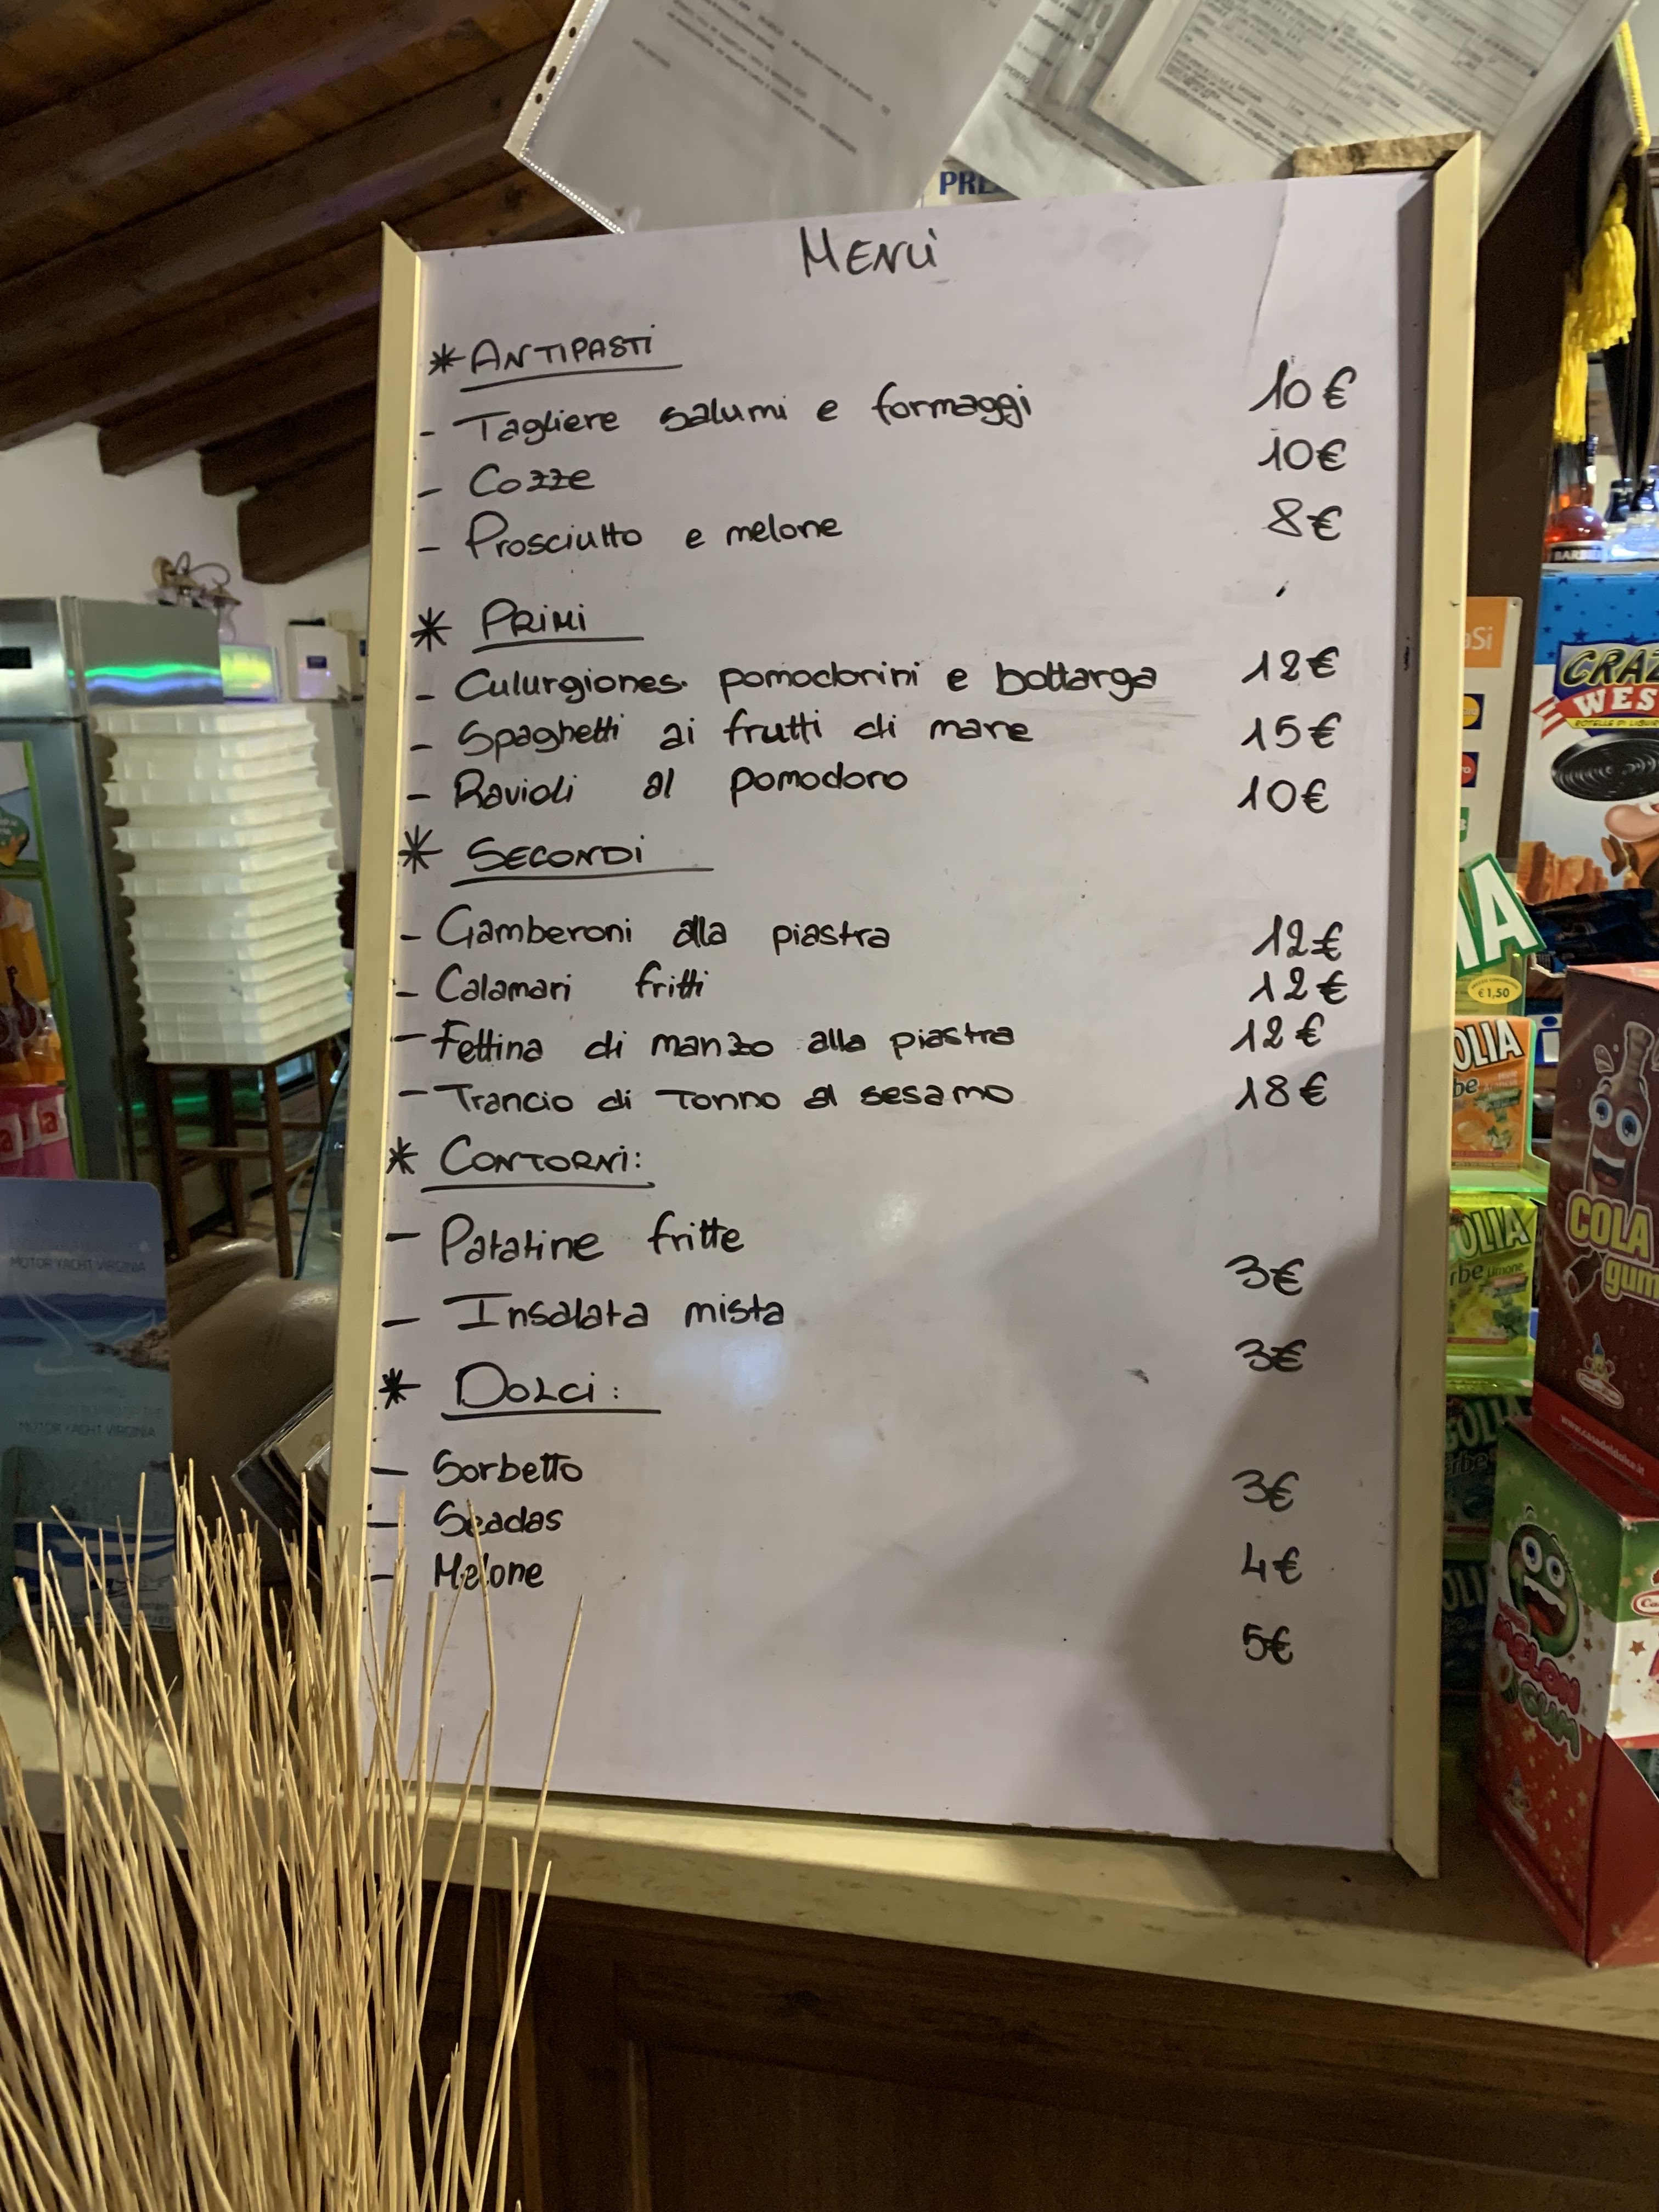 PRE
MENÙ
* ANTIPASTI
- Tagliere salumi e formaggi 10€
- Cozze 10€
- Prosciutto e melone 8€
* PRIMI
- Culurgiones. pomodorini e bottarga 12€
- Spaghetti ai frutti di mare 15€
- Ravioli al pomodoro 10€
* SECONDI
- Gamberoni alla piastra 12€
- Calamari fritti 12€
- Fettina di manzo alla piastra 12€
- Trancio di Tonno al sesamo 18€
* CONTORNI:
- Patatine fritte 3€
- Insalata mista 3€
* DOLCI:
- Sorbetto 3€
- Seadas 4€
- Melone 5€
MOTOR YACHT VIRGINIA
MOTOR YACHT VIRGINIA
BARBE
aSi
CRAZ
WES
ROTELLE DI LIQUI
IA
€1,50
OLIA
be
OLIA
rbe Limone
COLA
gum
www.casadeldolce.it
GOLI
erbe
OLI
MELON
GUM